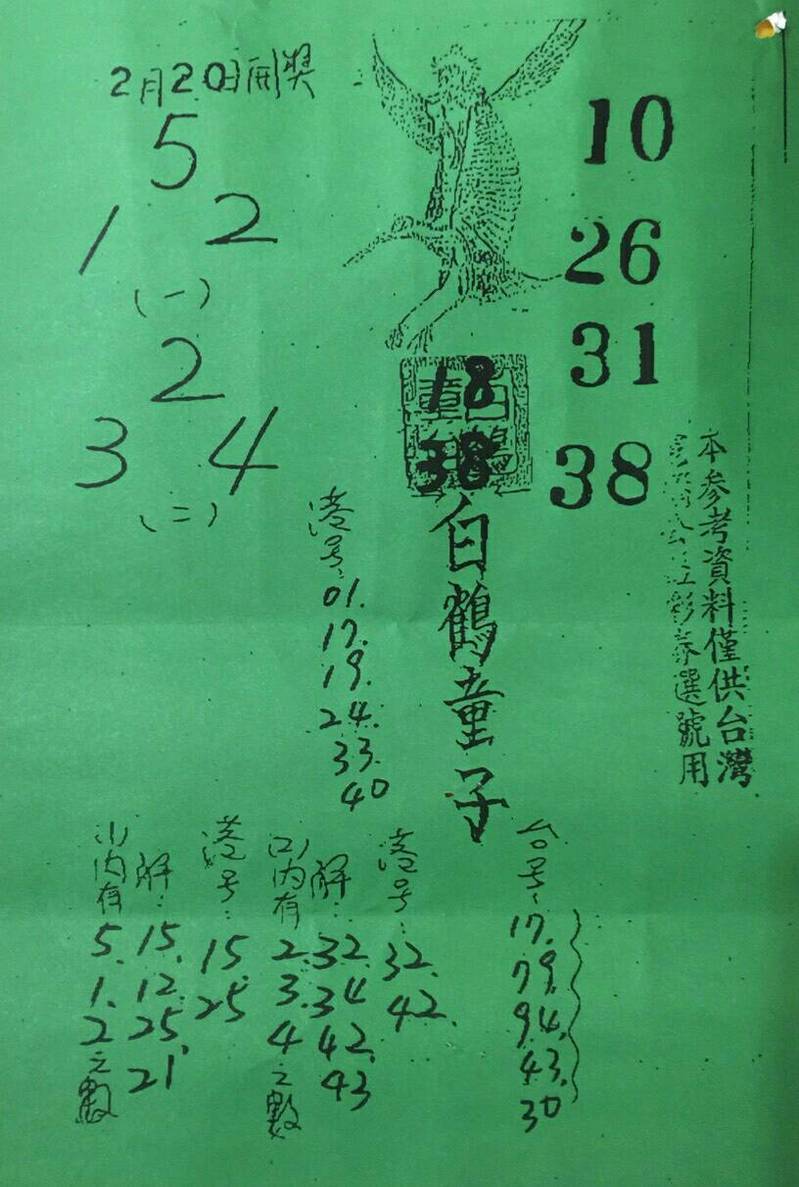 2月20日開獎
5
1 2
(一)
2
3 4
(二)
10
26
31
38
18
38
白鶴童子
本參考資料僅供台灣
彩券選號用
港号:
01.
17.
19.
24.
33.
40
(1)內有
5.
1.
2
之數
解:
15.
12.
25.
21
港号:
15.
25
(2)內有
2.
3.
4
之數
解:
32.
34
42.
43
港号:
32.
42.
台号:
17.
79.
94.
43.
30